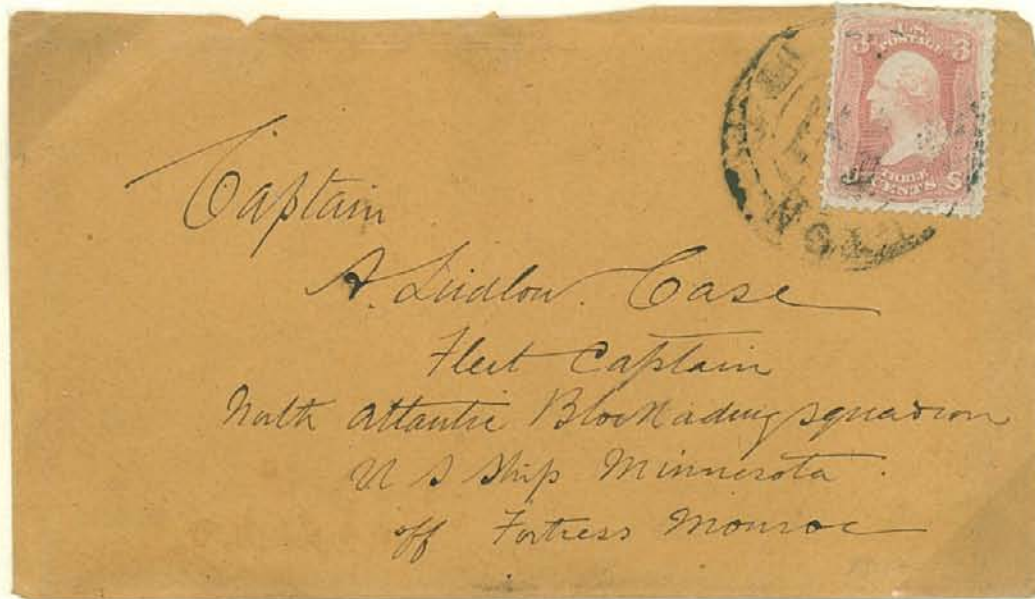 3 U.S. POSTAGE 3
THREE
U CENTS S
Captain
A. Ludlow. Case
Fleet Captain
North Atlantic Blockading squadron
U S Ship Minnesota
off Fortress Monroe